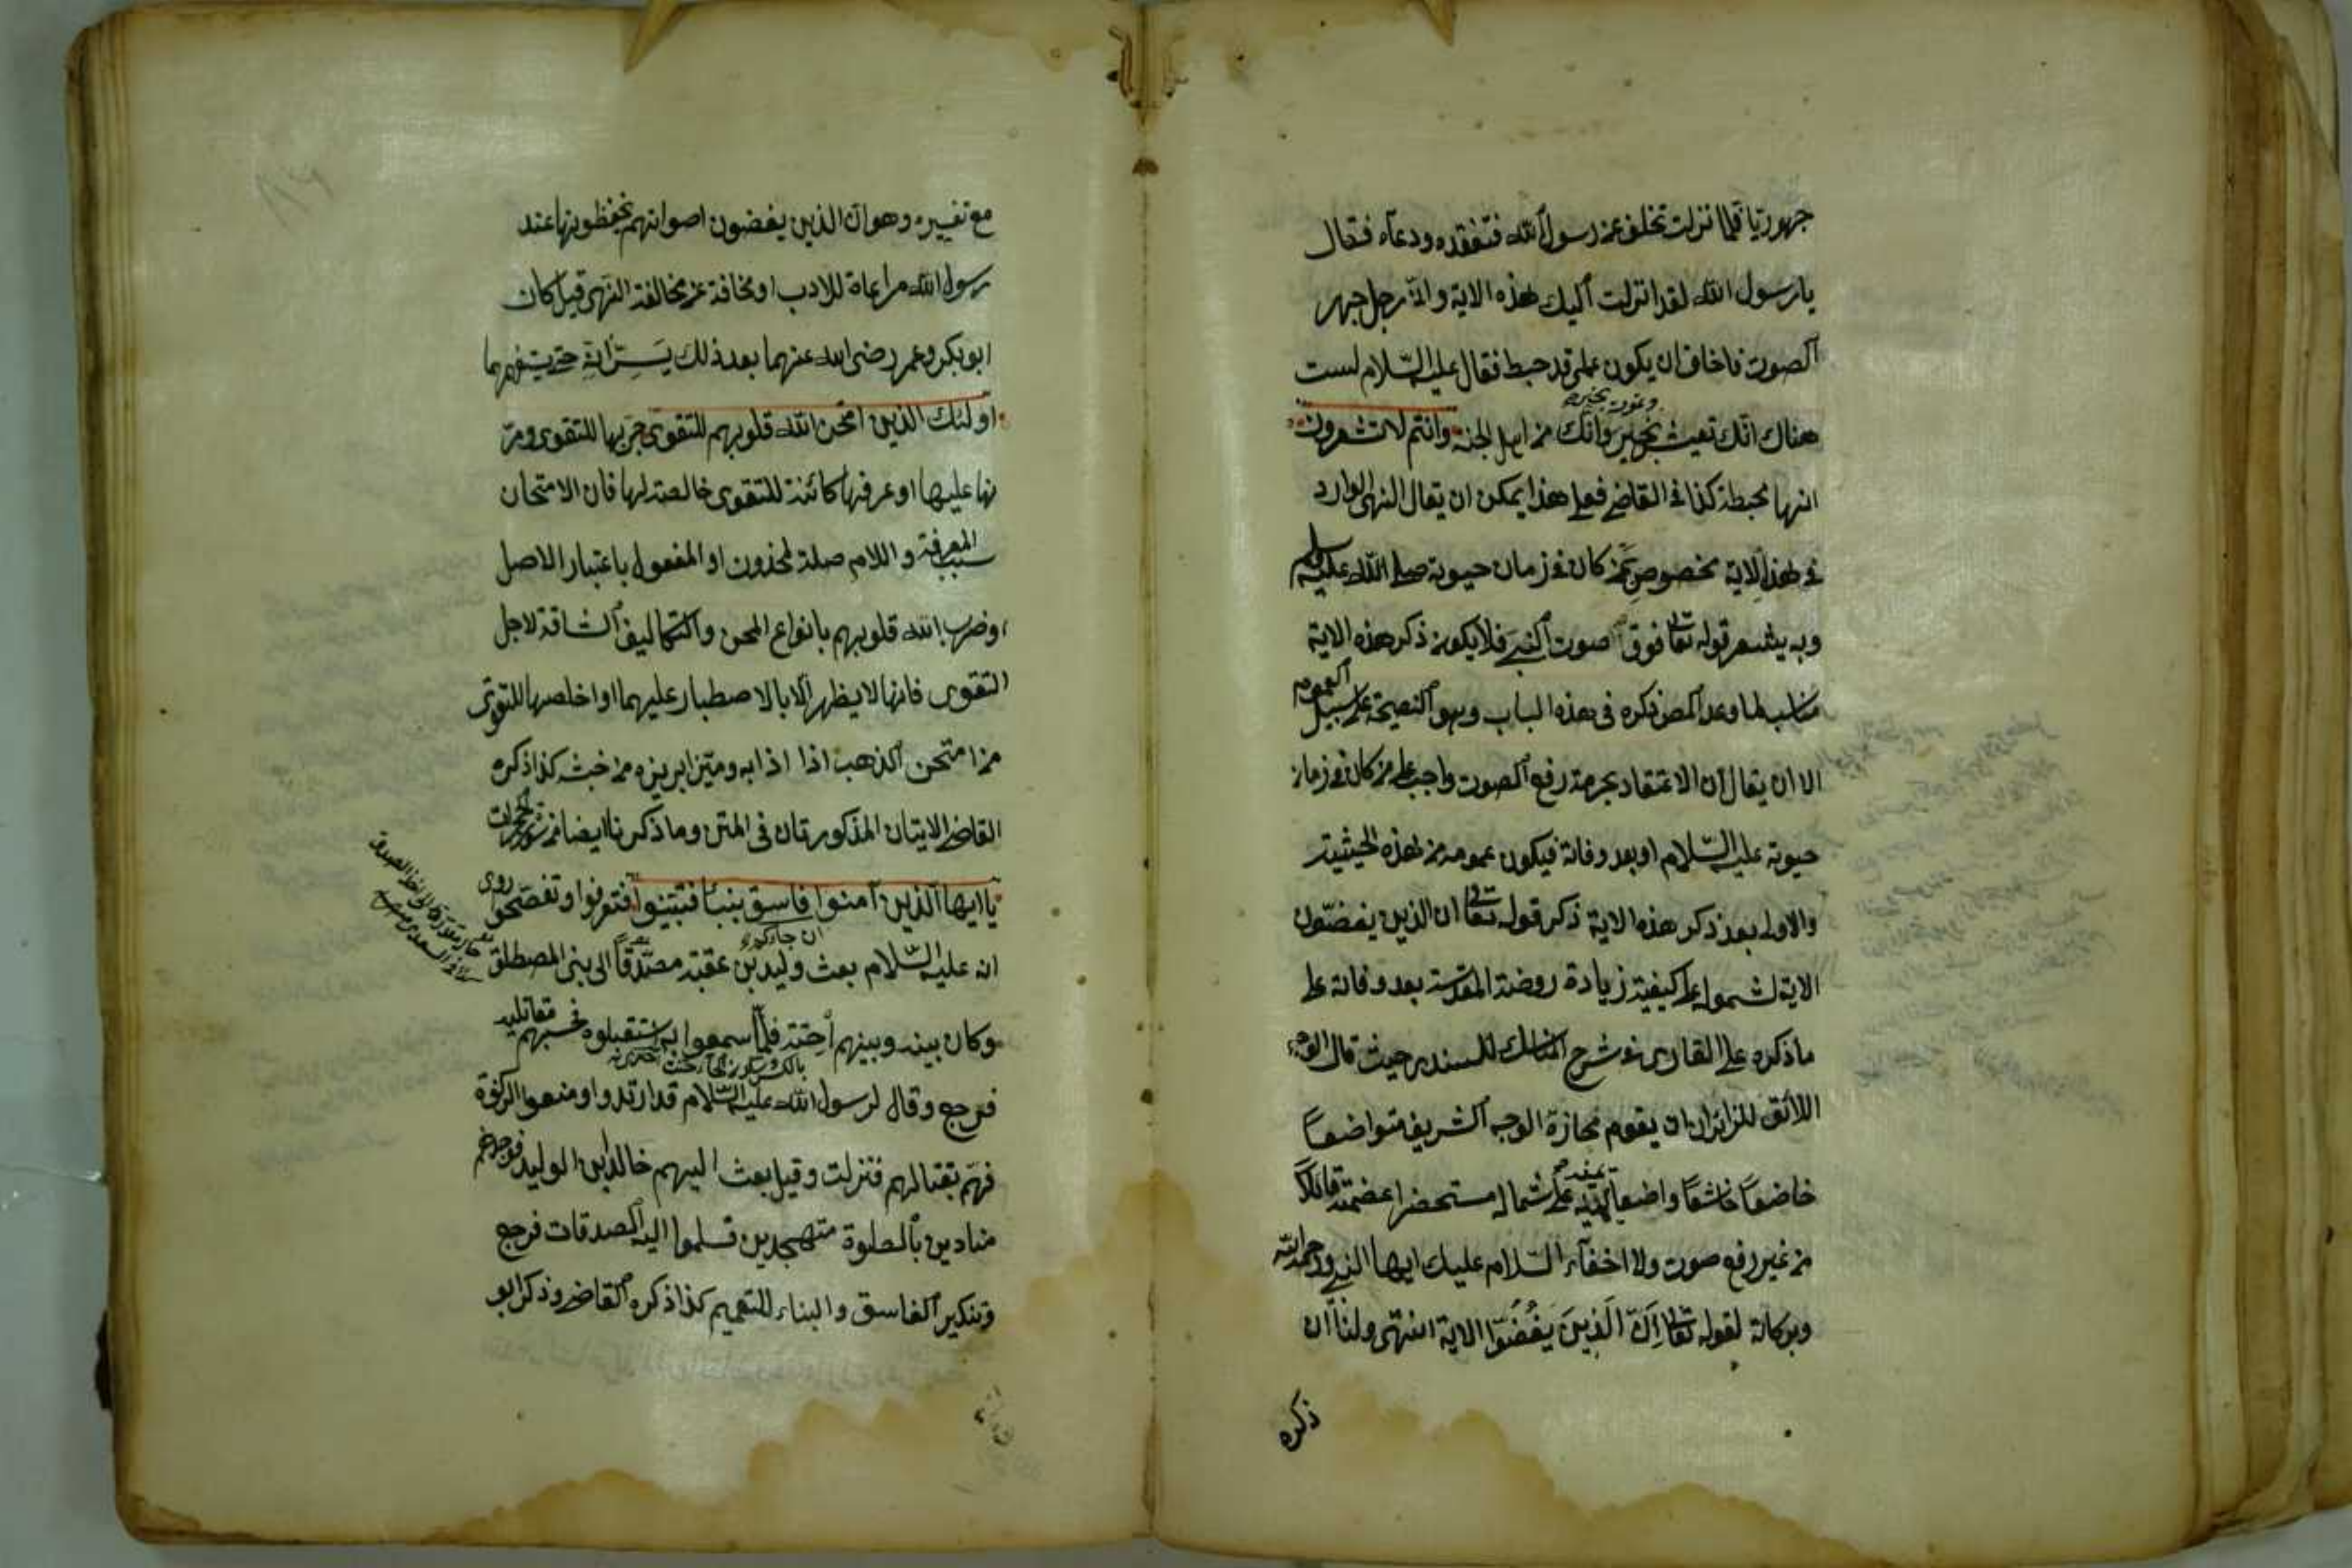 جهوريا فلما نزلت تخلف عن رسول الله فتفقده ودعاه فقال
يا رسول الله لقد انزلت اليك هذه الاية وانى رجل جهر
الصوت فاخاف ان يكون عملى قد حبط فقال عليه السلام لست
هناك انك تعيش بخير وانك من اهل الجنة وانتم لا تشعرون
وتموت بخير
انها محبطة كذا فى القاضى فعلى هذا يمكن ان يقال النهى الوارد
فى هذه الاية مخصوص بمن كان فى زمان حيوته صلى الله عليه وسلم
وبه يشعر قوله تعالى فوق صوت النبى فلا يكون ذكر هذه الاية
مناسبا لما وعد المص ذكره فى هذه الباب وهو النصيحة على سبيل العموم
الا ان يقال ان الاعتقاد بحرمة رفع الصوت واجب على من كان فى زمان
حيوته عليه السلام او بعد وفاته فيكون عمومه من هذه الحيثية
والاولى بعد ذكر هذه الاية ذكر قوله تعالى ان الذين يغضون
الاية لشموله على كيفية زيادة روضة المقدسة بعد وفاته على
ما ذكره على القارى فى شرح المناسك للسندى حيث قال
اللائق للزائر ان يقوم محازة الوجه الشريف متواضعا
خاضعا خاشعا واضعا يمينه على شماله مستحضرا عضمته قائلا
من غير رفع صوت ولا اخفاء السلام عليك ايها النبى ورحمة الله
وبركاته لقوله تعالى ان الذين يغضوا الاية انتهى ولنا ان
ذكره
مع تفسيره وهو ان الذين يغضون اصواتهم يخفظونها عند
رسول الله مراعاة للادب او مخافة عن مخالفة النهى قيل كان
ابو بكر وعمر رضى الله عنهما بعد ذلك يسرانه حتى يستفهمهما
اولئك الذين امتحن الله قلوبهم للتقوى جربها للتقوى ومر
نها عليها او عرفها كائنة للتقوى خالصة لها فان الامتحان
سبب المعرفة واللام صلة لمحذوف او المفعول باعتبار الاصل
او ضرب الله قلوبهم بانواع المحن والتكاليف الشاقة لاجل
التقوى فانها لا يظهر الا بالاصطبار عليهما او اخلصها للتقوى
من امتحن الذهب اذا اذابه وميز ابريزه من خبثه كذا ذكره
القاضى الايتان المذكورتان فى المتن وما ذكرنا ايضا من سورة الحجرات
يا ايها الذين آمنوا فاسق بنبأ فتبينوا فتعرفوا وتفصحوا روى
ان جاءكم
انه عليه السلام بعث وليد بن عقبة مصدقا الى بنى المصطلق
وكان بينه وبينهم احنة فلما سمعوا به استقبلوه فحسبهم مقاتليه
فرجع وقال لرسول الله عليه السلام قد ارتدوا ومنعوا الزكوة
فهم بقتالهم فنزلت وقيل بعث اليهم خالد بن الوليد فوجدهم
منادين بالصلوة متهجدين فسلموا اليه الصدقات فرجع
وتنكير الفاسق والبناء للتعميم كذا ذكره القاضى وذكر ابو